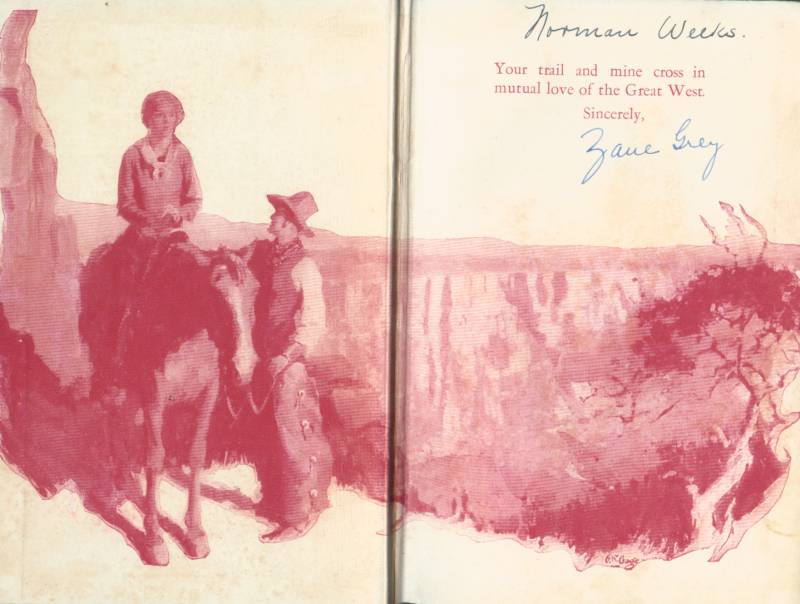 Norman Weeks.
Your trail and mine cross in
mutual love of the Great West.
Sincerely,
Zane Grey